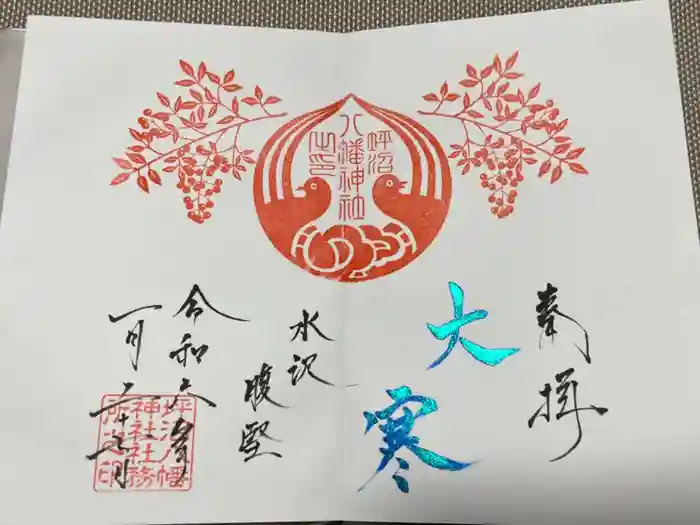 奉拝
大寒
水沢
腹堅
令和六年
一月二十五日
坪沼
八幡神社
之印
坪沼八幡
神社社務
所之印